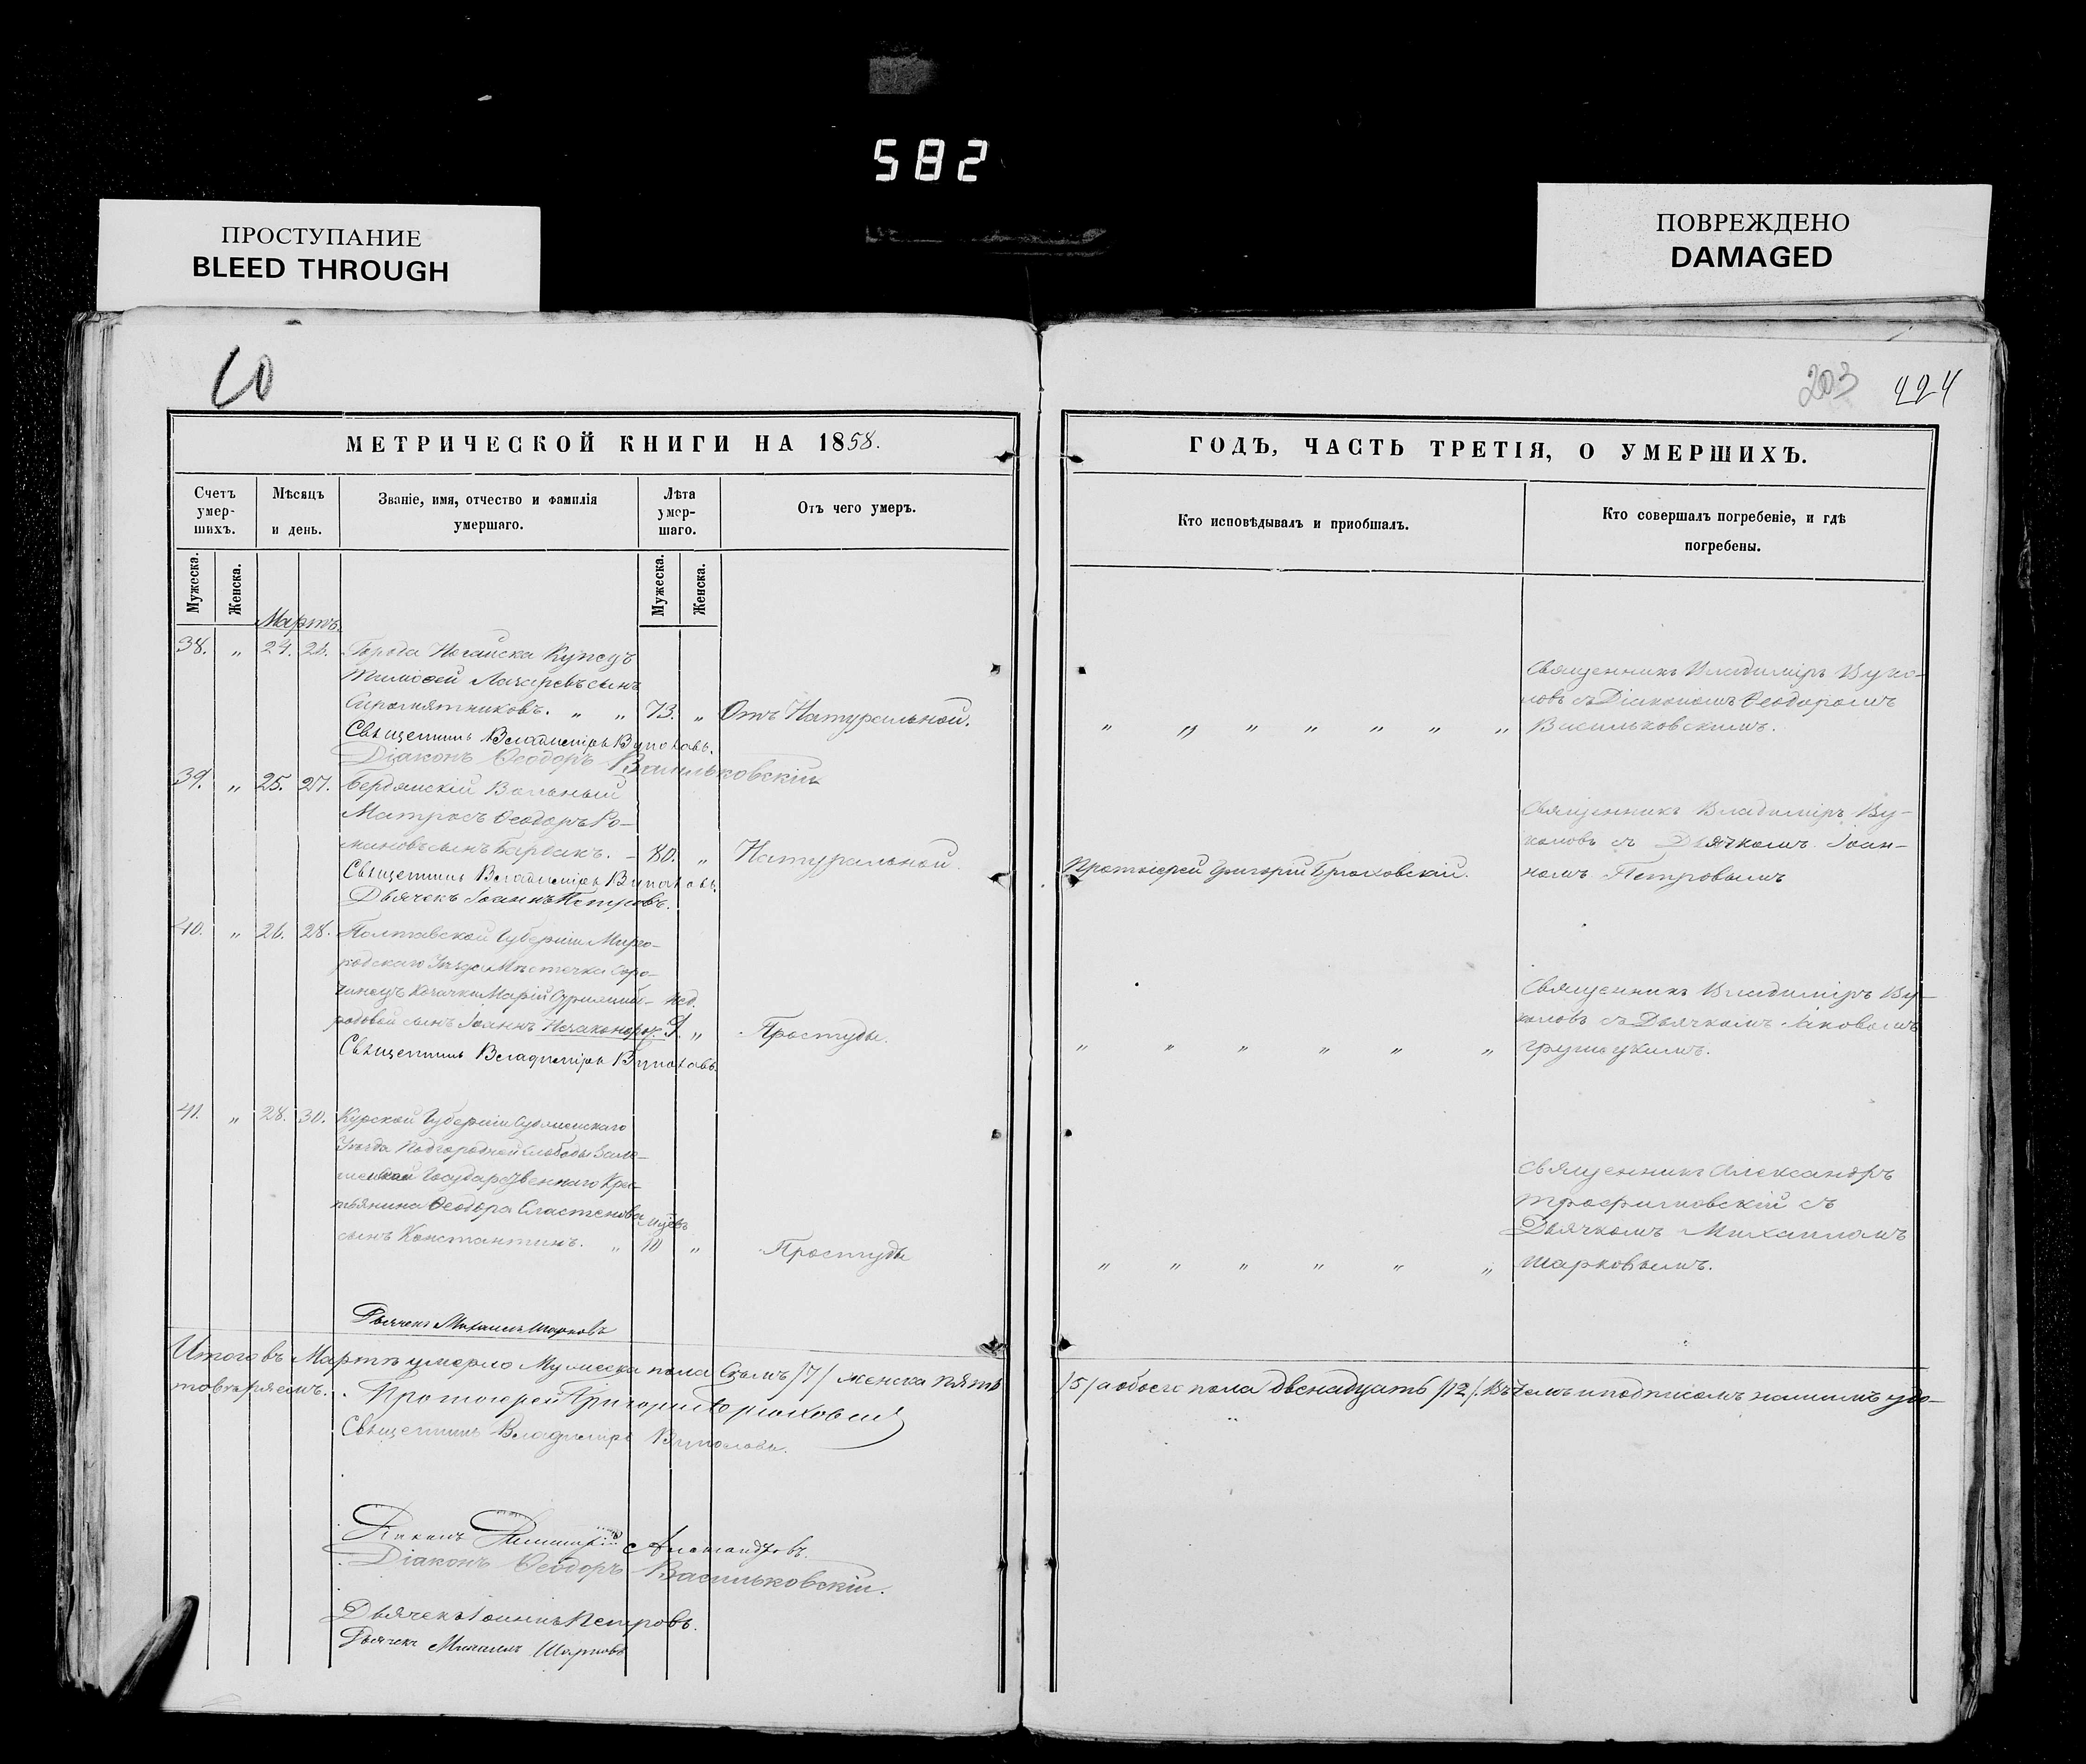 582
ПРОСТУПАНИЕ
BLEED THROUGH
ПОВРЕЖДЕНО
DAMAGED
203 424
МЕТРИЧЕСКОЙ КНИГИ НА 1858.
ГОДЪ, ЧАСТЬ ТРЕТІЯ, О УМЕРШИХЪ.
Счетъ умер-шихъ.
Мѣсяцъ и день.
Званіе, имя, отчество и фамилія умершаго.
Лѣта умер-шаго.
Отъ чего умеръ.
Кто исповѣдывалъ и приобшалъ.
Кто совершалъ погребеніе, и гдѣ погребены.
Мужеска.
Женска.
Мужеска.
Женска.
Мартъ.
38. " 24. 26. Города Ногайска Купецъ
Тимоѳей Лазаревъ сынъ
Сыромятниковъ. " " 73. " Отъ Натуральной.
Священникъ Владиміръ Вуколовъ.
Діаконъ Ѳеодоръ Васильковскій
" " " " " " "
Священникъ Владиміръ Вуко-
ловъ съ Діакономъ Ѳеодоромъ
Васильковскимъ.
39. " 25. 27. Бердянскій Вольный
Матросъ Ѳеодоръ Ро-
мановъ сынъ . – 80. " Натуральной
Священникъ Владиміръ Вуколовъ.
Дьячекъ Іоаннъ Петровъ.
Протоіерей Григорій Брюховскій.
Священникъ Владиміръ Ву-
коловъ съ Дьячкомъ Іоан-
номъ Петровымъ
40. " 26. 28. Полтавской Губерніи Мирго-
родскаго Уѣзда Мѣстечка Соро-
чинецъ Козачки Маріи нед.
сынъ Іоаннъ . "
Простуды.
Священникъ Владиміръ Вуколовъ.
" " " " " "
Священникъ Владиміръ Ву-
коловъ съ Дьячкомъ Іаковомъ
41. " 28. 30. Курской Губерніи Суджанскаго
Уѣзда Подгородней Слободы
Государственнаго Крес-
тьянина Ѳеодора Сластенова
сынъ Константинъ. " 10 " Простуды
" " " " " "
Священникъ Александръ
Трофимовскій съ
Дьячкомъ Михаиломъ
Шарковымъ.
Дьячекъ Михаилъ Шарковъ
Итого въ Мартѣ умерло Мужеска пола Седмъ /7/ женска пять
/5/ а обоего пола двенадцать /12/. Въ чемъ и подписомъ нашимъ удо-
товѣряемъ. Протоіерей Григорій Брюховскій
Священникъ Владиміръ Вуколовъ.
Діаконъ Димитрій Александровъ.
Діаконъ Ѳеодоръ Васильковскій.
Дьячекъ Іоаннъ Петровъ.
Дьячекъ Михаилъ Шарковъ